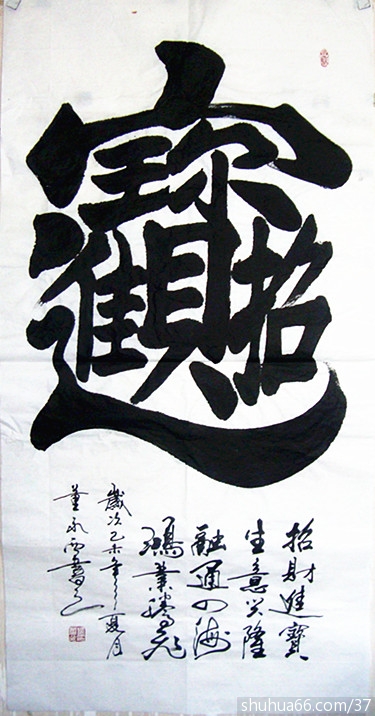 招財進寶
招財進寶
生意兴隆
融通四海
鴻業騰飛
歲次乙未年夏月
董永西書
shuhua66.com/37